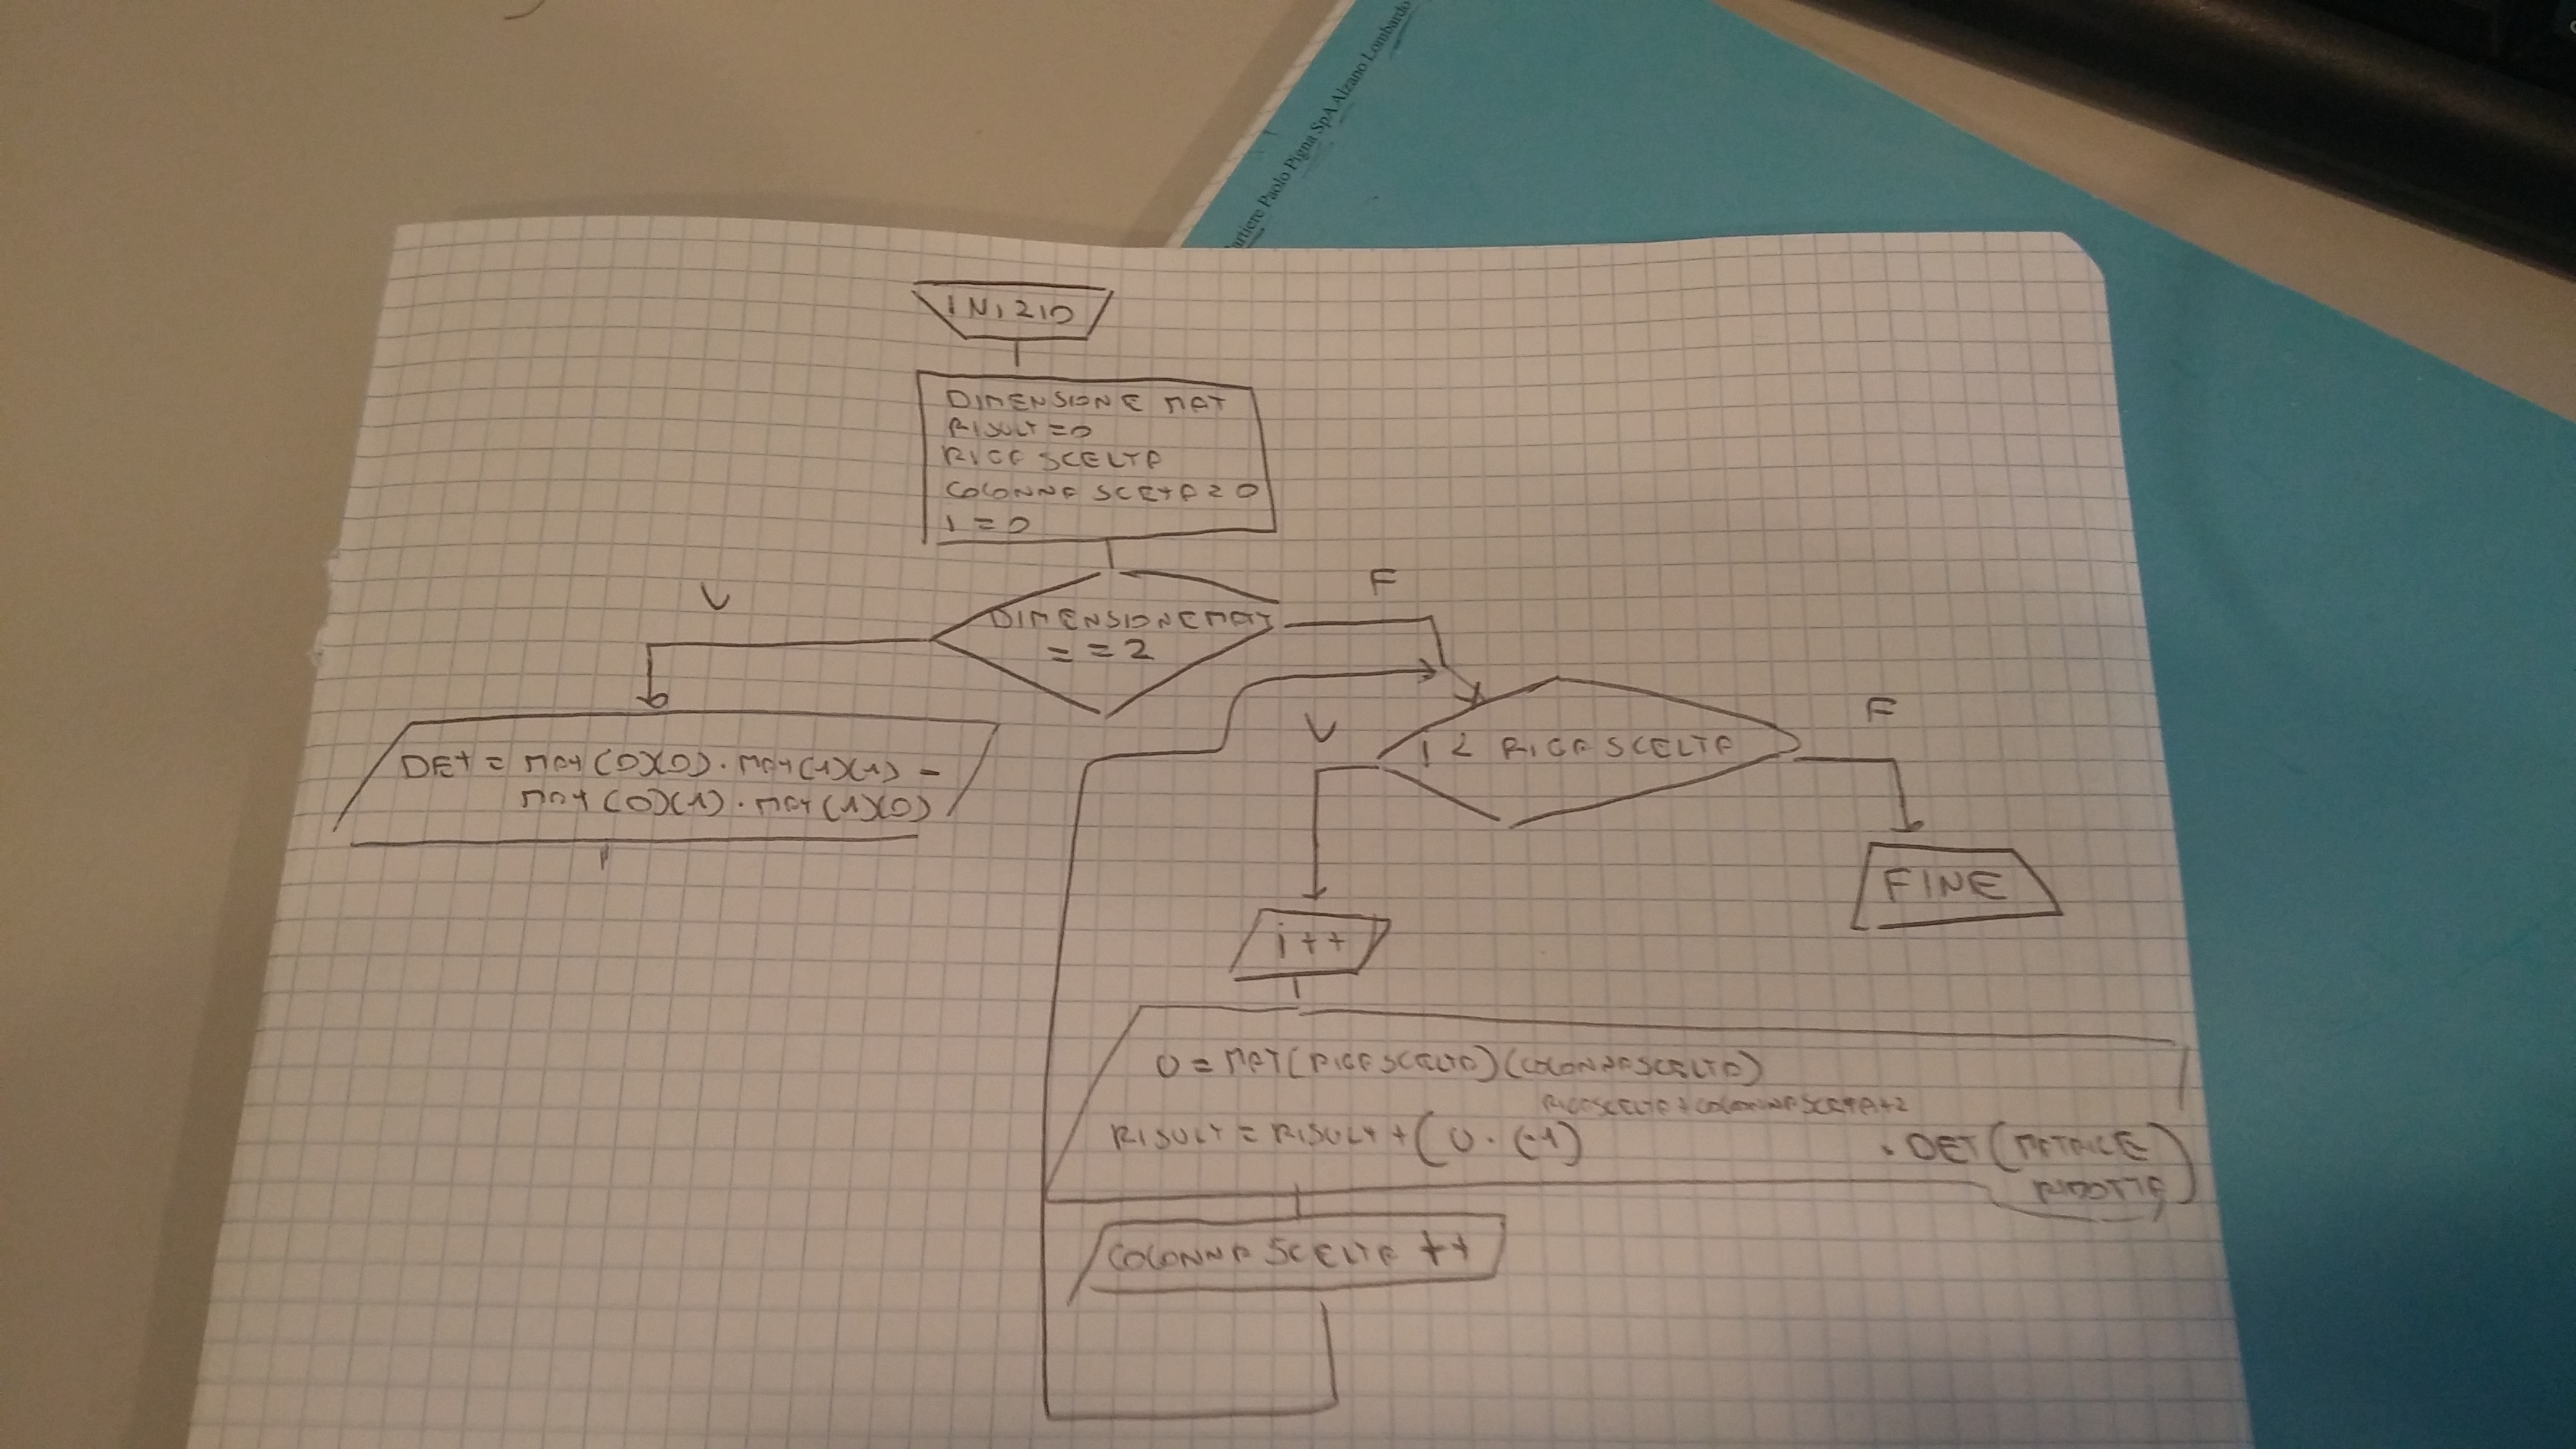 artiere Paolo Pigna SpA Alzano Lombardo
INIZIO
DIMENSIONE MAT
RISULT = 0
RIGA SCELTA
COLONNA SCETA = 0
I = 0
DIMENSIONE MAT
= = 2
V
F
DET = MAT(0)(0) · MAT(1)(1) -
MAT(0)(1) · MAT(1)(0)
I < RIGA SCELTA
V
F
FINE
i++
U = MAT(RIGA SCELTA)(COLONNA SCELTA)
RIGA SCELTA + COLONNA SCETA + 2
RISULT = RISULT + (U · (-1) · DET (MATRICE
RIDOTTA)
COLONNA SCELTA ++